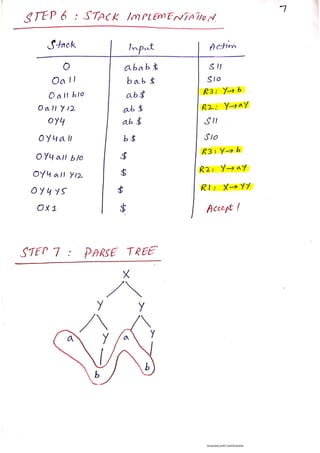 7
STEP 6 : STACK IMPLEMENTATION
Stack Input Action
0 abab$ S11
0a11 bab$ S10
0a11b10 ab$ R3: Y→b
0a11Y12 ab$ R2: Y→aY
0Y4 ab$ S11
0Y4a11 b$ S10
0Y4a11b10 $ R3: Y→b
0Y4a11Y12 $ R2: Y→aY
0Y4Y5 $ R1: X→YY
0X1 $ Accept!
STEP 7 : PARSE TREE
X
Y Y
a Y a Y
b b
Scanned with CamScanner